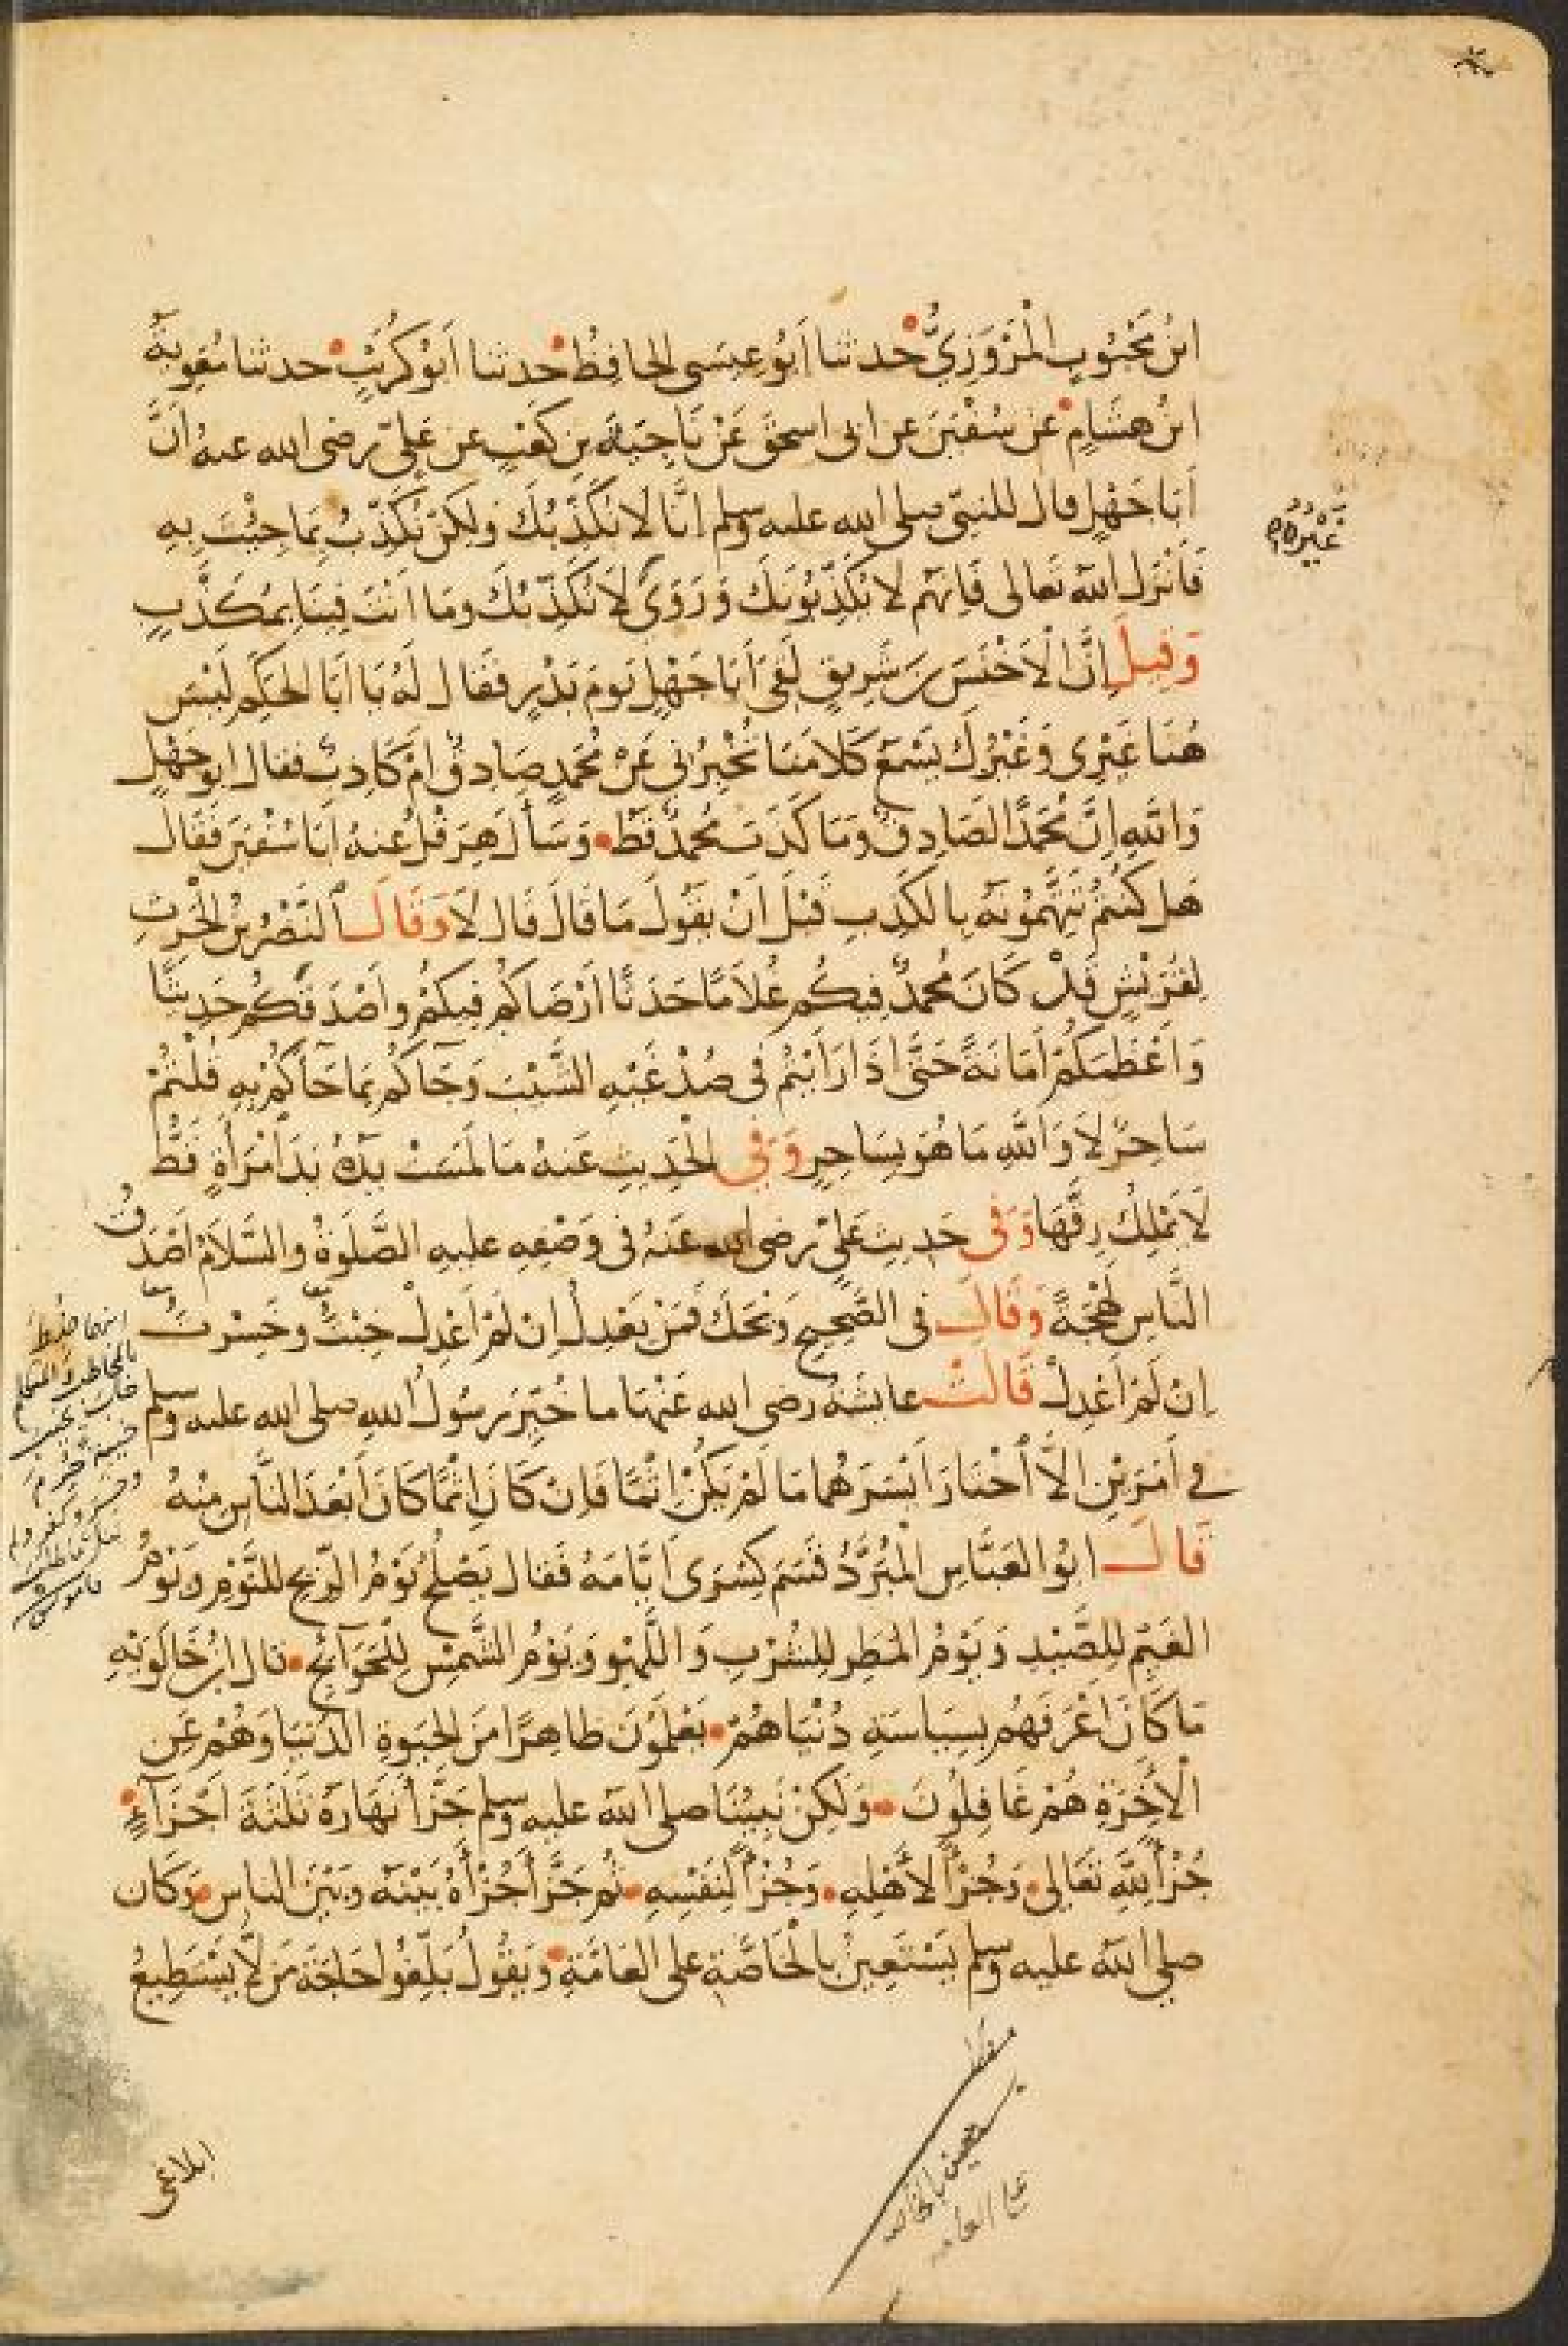 ابْنُ مَحْبُوبٍ الْمَرْوَزِيُّ حدثنا اَبُو عِيسَى الحافِظُ حدثنا اَبُو كُرَيْبٍ حدثنا مُعٰوِيَةُ
ابْنُ هشَامٍ عَن سُفْيٰنَ عن ابى اسحٰقَ عَنْ نَاجِيَةَ بنِ كَعْبٍ عن عَلِىٍّ رضى الله عنه اَنَّ
اَبَا جَهْلٍ قال للنبىِّ صلى الله عليه وسلم اِنَّا لَا نُكَذِّبُكَ ولكِنْ نُكَذِّبُ بِمَا جِئْتَ بِهِ
فَاَنْزَلَ اللهُ تَعالى فَاِنَّهُم لَا يُكَذِّبُونَكَ وَرَوَى غَيْرُهُ لَا نُكَذِّبُكَ وَمَا اَنْتَ فِينَا بِمُكَذَّبٍ
وَقِيلَ اِنَّ الْاَخْنَسَ بنَ شَرِيقٍ لَقِىَ اَبَا جَهْلٍ يَومَ بَدْرٍ فَقَال لَهُ يَا اَبَا الحَكَمِ لَيْسَ
هُنَا غَيْرِى وَغَيْرُكَ يَسْمَعُ كَلَامَنَا تُخْبِرُنِى عَنْ مُحَمَّدٍ صَادِقٌ اَمْ كَاذِبٌ فقال ابوجَهْلٍ
وَاللهِ اِنَّ مُحَمَّدًا لَصَادِقٌ وَمَا كَذَبَ مُحَمَّدٌ قَطُّ وَسَأَلَ هِرَقْلُ عنهُ اَبَا سُفْيٰنَ فَقَالَ
هَل كُنْتُمْ تَتَّهِمُونَهُ بِالكَذِبِ قَبْلَ اَنْ يَقُولَ مَا قَالَ قَال لَا وَقَالَ النَّضْرُ بْنُ الْحٰرِثِ
لِقُرَيْشٍ قَدْ كَانَ مُحَمَّدٌ فِيكُم غُلَامًا حَدَثًا اَرْضَاكُمْ فِيكُمْ وَاَصْدَقَكُم حَدِيثًا
وَاَعْظَمَكُمْ اَمَانَةً حَتَّى اِذَا رَاَيْتُمْ فى صُدْغَيْهِ الشَّيْبَ وَجَآكُم بمَا جَآكُمْ بِهِ قُلْتُمْ
سَاحِرٌ لَا وَاللهِ مَا هُوَ بِسَاحِرٍ وَفِى الْحَدِيثِ عَنهُ مَا لَمَسَتْ يَدُهُ يَدَ امْرَأَةٍ قَطُّ
لَا يَمْلِكُ رِقَّهَا وَفى حَدِيثِ عَلِىٍّ رضى الله عَنْهُ فى وَصْفِهِ عليهِ الصَّلوةُ والسَّلَامُ اَصْدَقُ
النَّاسِ لَهْجَةً وَقَالَ فى الصَّحِيحِ وَيْحَكَ فَمَنْ يَعْدِلُ اِن لَمْ اَعْدِلْ خِبْتُ وخَسِرْتُ
اِنْ لَمْ اَعْدِلْ قَالَتْ عايشَةُ رضى الله عَنْهَا ما خُيِّرَ رَسُولُ اللهِ صلى الله عليه وسلم
في اَمْرَيْنِ اِلَّا اخْتَارَ اَيْسَرَهُما مَا لَمْ يَكُنْ اِثْمًا فَاِنْ كَانَ اِثْمًا كَانَ اَبْعَدَ النَّاسِ مِنْهُ
قَالَ ابُو العَبَّاسِ الْمُبَرَّدُ قَسَمَ كِسْرَى اَيَّامَهُ فَقال يَصْلُحُ يَوْمُ الرِّيحِ لِلنَّوْمِ وَيَوْمُ
الغَيْمِ لِلصَّيْدِ وَيَوْمُ المَطَرِ لِلشُّرْبِ وَاللَّهْوِ وَيَوْمُ الشَّمْسِ لِلْحَوَآئِجِ قال ابْنُ خَالَوَيْهِ
مَا كَانَ اَعْرَفَهُم بِسِيَاسَةِ دُنْيَاهُمْ يَعْلَمُونَ ظَاهِرًا مِنَ الحَيٰوةِ الدُّنْيَا وَهُمْ عَنِ
الْاٰخِرَةِ هُمْ غَافِلُونَ وَلكِنْ نَبِيُّنَا صلى الله عليه وسلم جَزَّأَ نَهَارَهُ ثَلٰثَةَ اَجْزَآءٍ
جُزْأً لِلهِ تَعَالى وَجُزْأً لِاَهْلِهِ وَجُزْأً لِنَفْسِهِ ثُمَّ جَزَّأَ جُزْأَهُ بَيْنَهُ وبَيْنَ الناسِ وَكَان
صلى الله عليه وسلم يَسْتَعِينُ بِالْخَاصَّةِ على العَامَّةِ وَيَقُولُ بَلِّغُوا حَاجَةَ مَنْ لَا يَسْتَطِيعُ
غَيْرُهُ
يستعين بالخاصه
على العامه
ابلاغى